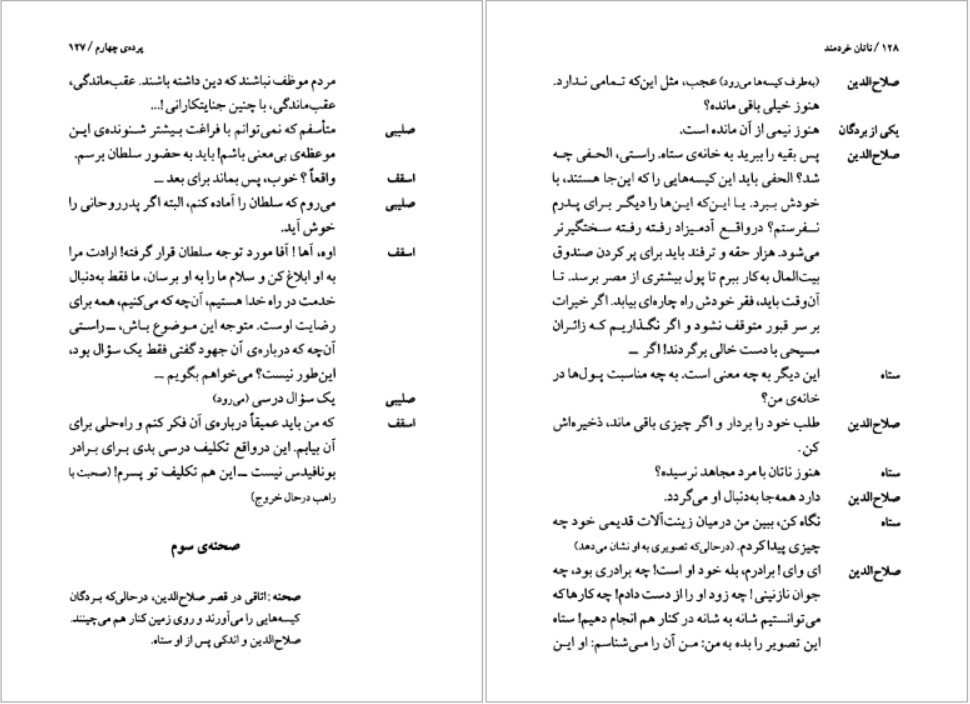 پرده‌ی چهارم / ۱۲۷
مردم موظف نباشند که دین داشته باشند. عقب‌ماندگی،
عقب‌ماندگی، با چنین جنایتکارانی !...
صلیبی متأسفم که نمی‌توانم با فراغت بیشتر شنونده‌ی این
موعظه‌ی بی‌معنی باشم! باید به حضور سلطان برسم.
اسقف واقعاً ؟ خوب، پس بماند برای بعد ــ
صلیبی می‌روم که سلطان را آماده کنم، البته اگر پدرروحانی را
خوش آید.
اسقف اوه، آها ! آقا مورد توجه سلطان قرار گرفته! ارادت مرا
به او ابلاغ کن و سلام ما را به او برسان، ما فقط به‌دنبال
خدمت در راه خدا هستیم، آن‌چه که می‌کنیم، همه برای
رضایت اوست. متوجه این موضوع باش، ــ راستی
آن‌چه که درباره‌ی آن جهود گفتی فقط یک سؤال بود،
این‌طور نیست؟ می‌خواهم بگویم ــ
صلیبی یک سؤال درسی (می‌رود)
اسقف که من باید عمیقاً درباره‌ی آن فکر کنم و راه‌حلی برای
آن بیابم. این درواقع تکلیف درسی بدی برای برادر
بونافیدس نیست ــ این هم تکلیف تو پسرم! (صحبت با
راهب درحال خروج)
صحنه‌ی سوم
صحنه : اتاقی در قصر صلاح‌الدین، درحالی‌که بردگان
کیسه‌هایی را می‌آورند و روی زمین کنار هم می‌چینند.
صلاح‌الدین و اندکی پس از او ستاه.
۱۲۸ / ناتان خردمند
صلاح‌الدین (به‌طرف کیسه‌ها می‌رود) عجب، مثل این‌که تمامی ندارد.
هنوز خیلی باقی مانده؟
یکی از بردگان هنوز نیمی از آن مانده است.
صلاح‌الدین پس بقیه را ببرید به خانه‌ی ستاه. راستی، الحفی چه
شد؟ الحفی باید این کیسه‌هایی را که این‌جا هستند، با
خودش ببرد. یا این‌که این‌ها را دیگر برای پدرم
نفرستم؟ درواقع آدمیزاد رفته رفته سختگیرتر
می‌شود. هزار حقه و ترفند باید برای پر کردن صندوق
بیت‌المال به‌کار ببرم تا پول بیشتری از مصر برسد. تا
آن‌وقت باید، فقر خودش راه چاره‌ای بیابد. اگر خیرات
بر سر قبور متوقف نشود و اگر نگذاریم که زائران
مسیحی با دست خالی برگردند! اگر ــ
ستاه این دیگر به چه معنی است. به چه مناسبت پول‌ها در
خانه‌ی من؟
صلاح‌الدین طلب خود را بردار و اگر چیزی باقی ماند، ذخیره‌اش
کن.
ستاه هنوز ناتان با مرد مجاهد نرسیده؟
صلاح‌الدین دارد همه‌جا به‌دنبال او می‌گردد.
ستاه نگاه کن، ببین من درمیان زینت‌آلات قدیمی خود چه
چیزی پیدا کردم. (درحالی‌که تصویری به او نشان می‌دهد)
صلاح‌الدین ای وای ! برادرم، بله خود او است! چه برادری بود، چه
جوان نازنینی ! چه زود او را از دست دادم! چه کارها که
می‌توانستیم شانه به شانه در کنار هم انجام دهیم! ستاه
این تصویر را بده به من: من آن را می‌شناسم: او این